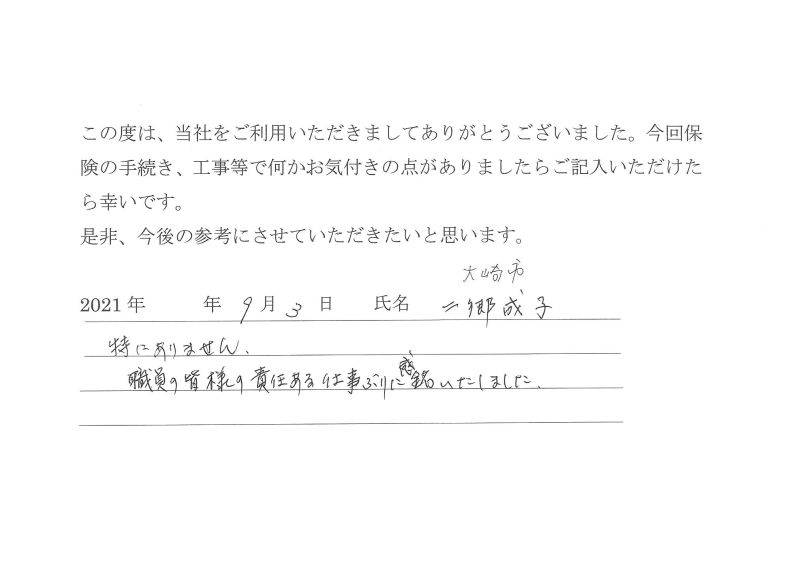 この度は、当社をご利用いただきましてありがとうございました。今回保
険の手続き、工事等で何かお気付きの点がありましたらご記入いただけた
ら幸いです。
是非、今後の参考にさせていただきたいと思います。
大崎市
2021年 年 9月 3 日 氏名 二郷成子
特にありません.
職員の皆様の責任ある仕事ぶりに感銘いたしました.